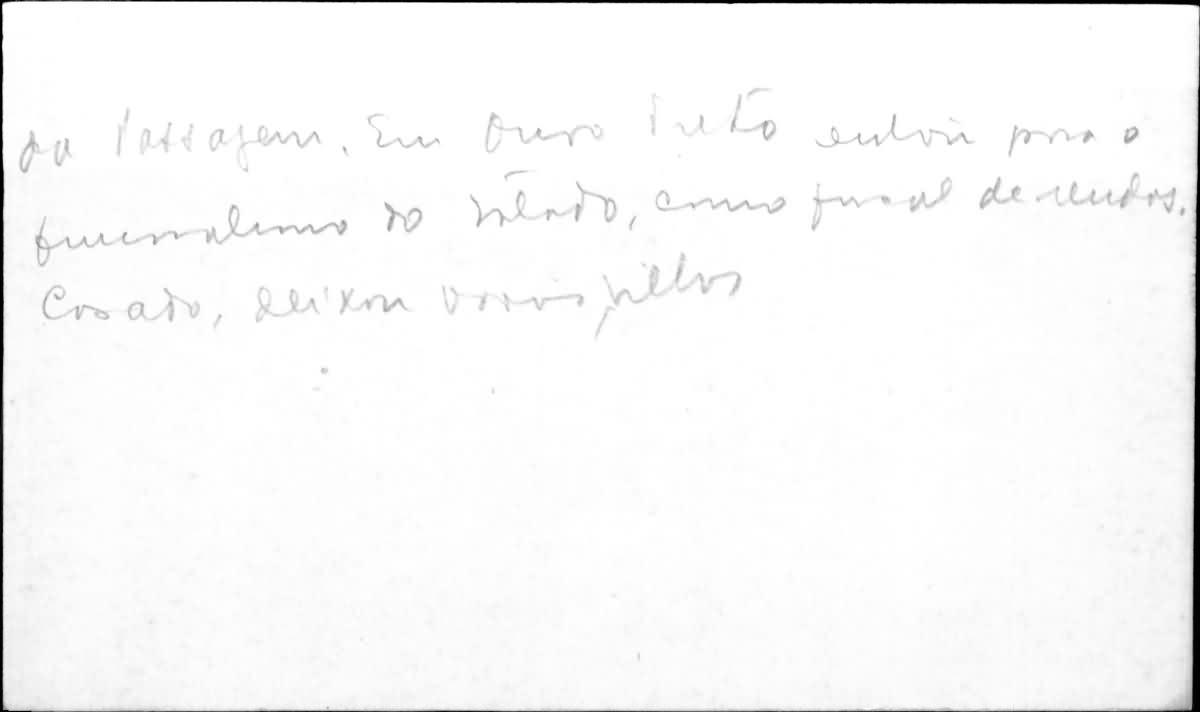 da Passagem. Em Ouro Preto entrou para o
funcionalismo do Estado, como fiscal de rendas.
Casado, deixou varios filhos